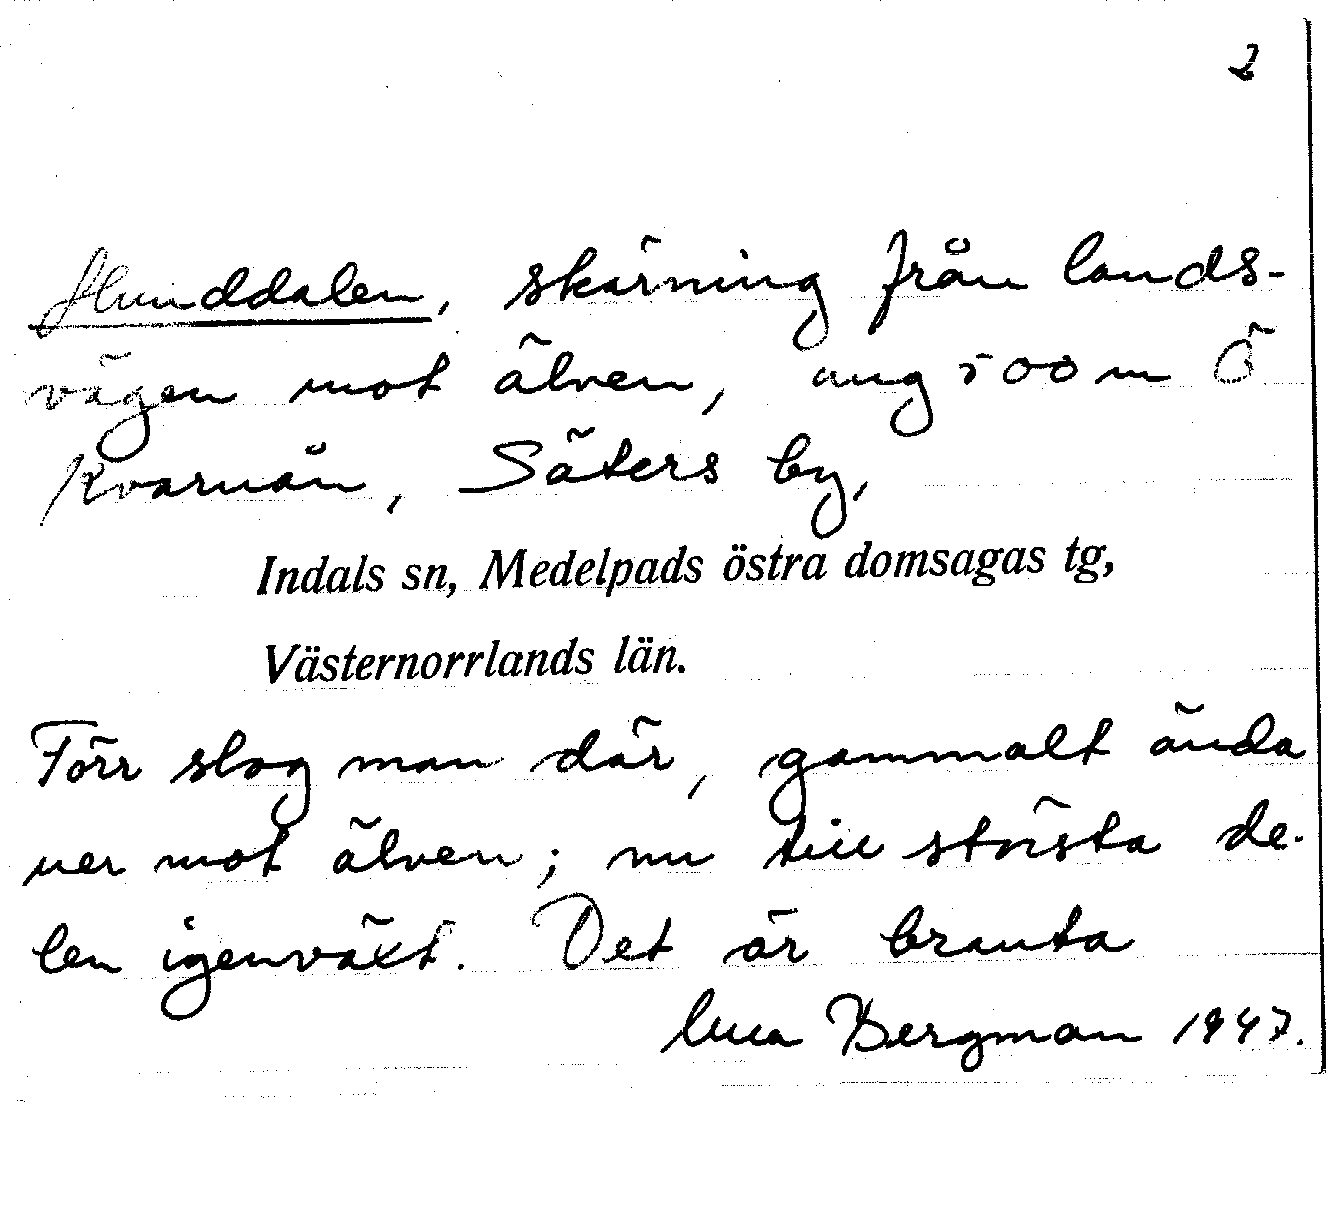 2
Hunddalen, skärning från lands-
vägen mot älven, ung 500 m Ö
Kvarnån, Säters by,
Indals sn, Medelpads östra domsagas tg,
Västernorrlands län.
Förr slog man där, gammalt ända
ner mot älven; nu till största de-
len igenväxt. Det är branta
Bergman 1947.